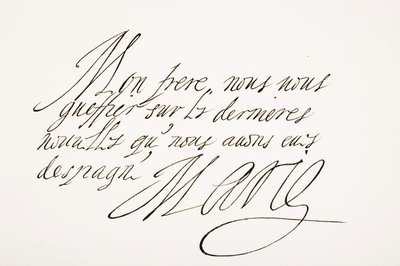 Mon frere, nous nous
sur les dernieres
nouuelles qu'nous auons eus
despagn Marie